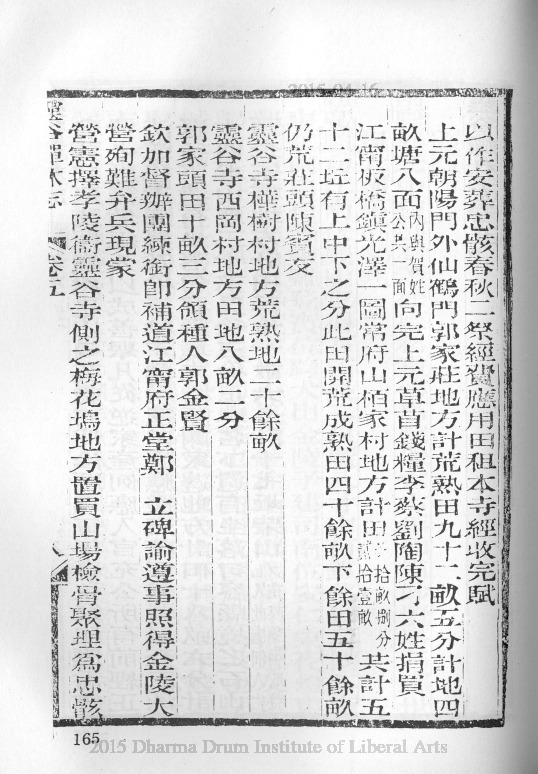 以作安葬忠骸春秋二祭經費應用田租本寺經收完賦
上元朝陽門外仙鶴門郭家莊地方計荒熟田九十二畝五分計地四
畝塘八面內與賀姓公共一面向完上元草苜錢糧李蔡劉陶陳刁六姓捐買
江甯板橋鎮光澤一圖常府山栢家村地方計田拾畝捌分拾壹畝共計五
十二坵有上中下之分此田開荒成熟田四十餘畝下餘田五十餘畝
仍荒莊頭陳賢友
靈谷寺樺樹村地方荒熟地二十餘畝
靈谷寺西岡村地方田地八畝二分
郭家頭田十畝三分領種人郭金賢
欽加督辦團練銜卽補道江甯府正堂鄭 立碑諭遵事照得金陵大
營殉難弁兵現蒙
營憲擇孝陵衞靈谷寺側之梅花塢地方置買山塲檢骨聚埋爲忠骸
靈谷禪林志 卷五 八
165
2015 Dharma Drum Institute of Liberal Arts